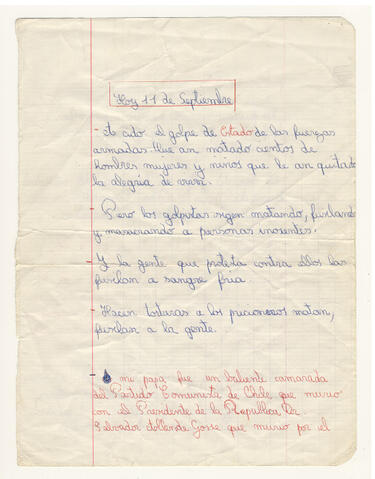 Hoy 11 de Septiembre
- A sido el golpe de Estado de las fuerzas
armadas que an matado cientos de
hombres mujeres y niños que le an quitado
la alegria de vivir.
- Pero los golpistas sigen matando, fusilando
y masacrando a personas inosentes.
- Y la gente que protesta contra ellos las
fusilan a sangre fria.
- Hacen toturas a los pricioneros matan,
fusilan a la gente.
- mi papa fue un baliente camarada
del Partido Comunista de Chile que murio
con el Presidente de la Republica Dr.
Salvador Allende Gosse que murio por el